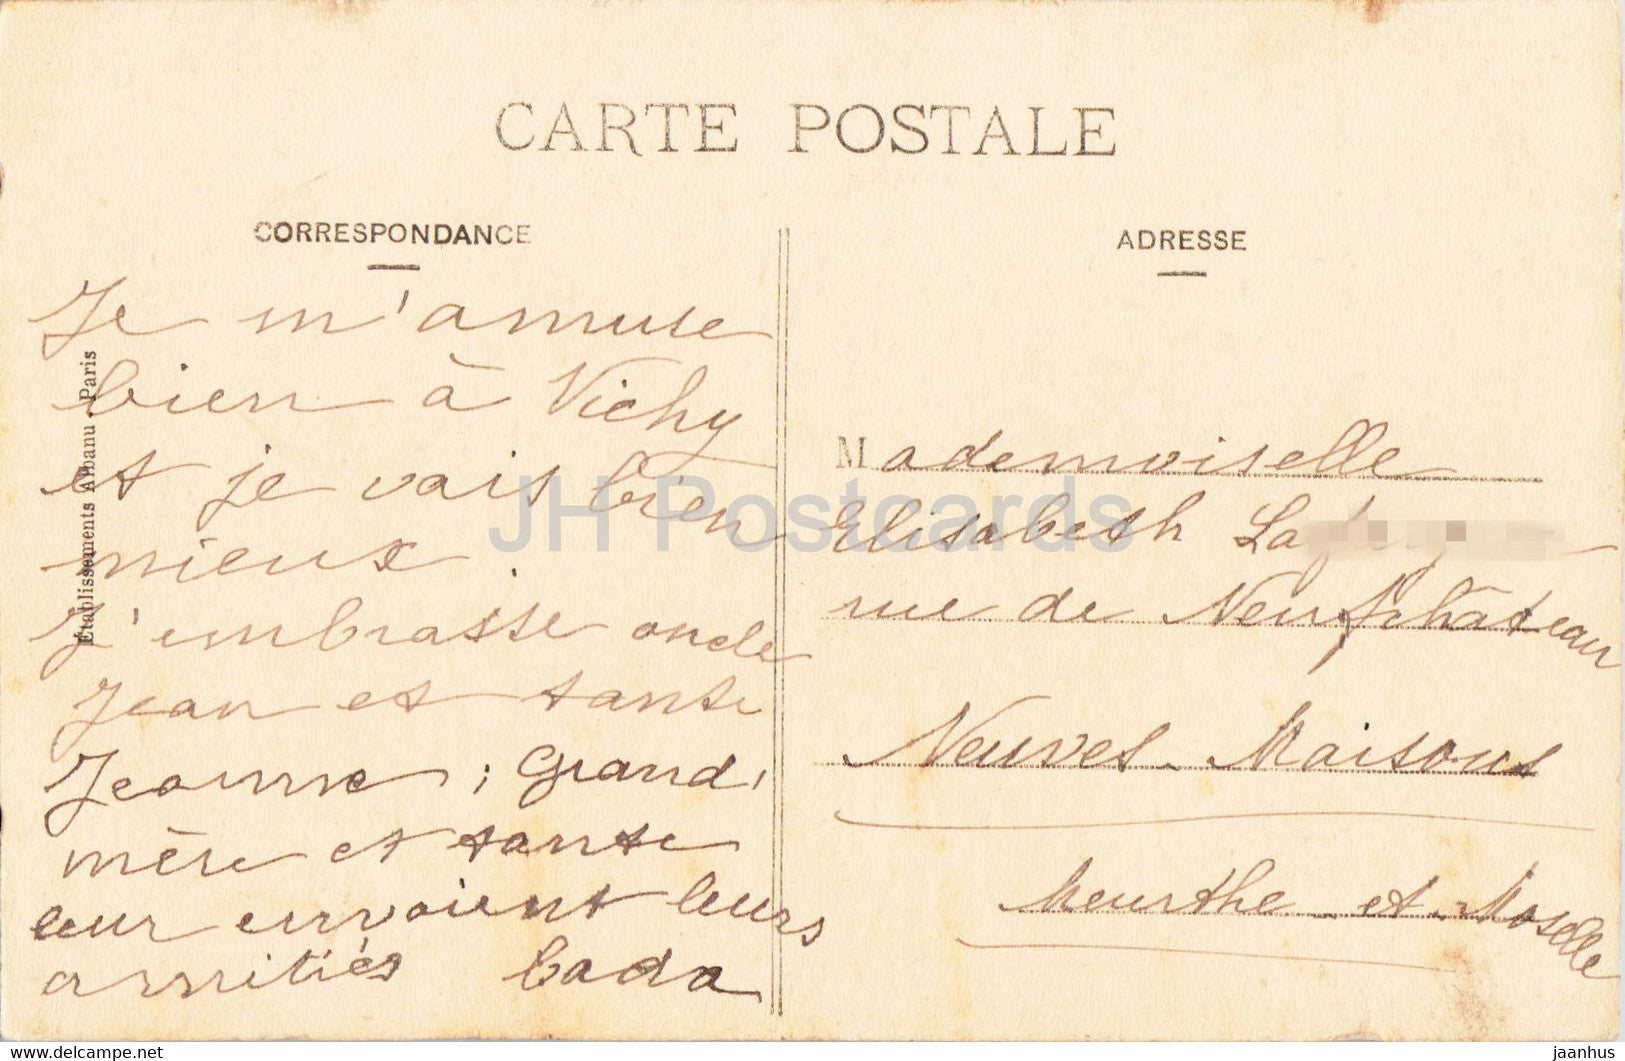 CARTE POSTALE
CORRESPONDANCE
Je m'amuse
bien à Vichy
et je vais bien
mieux.
J'embrasse oncle
Jean et tante
Jeanne ; Grand,
mère et tante
leur envoient leurs
amitiés
Établissements Albanu. Paris
ADRESSE
Mademoiselle
Elisabeth
rue de Neufchâteau
Neuves-Maisons
Meurthe-et-Moselle
JH Postcards
www.delcampe.net
jaanhus